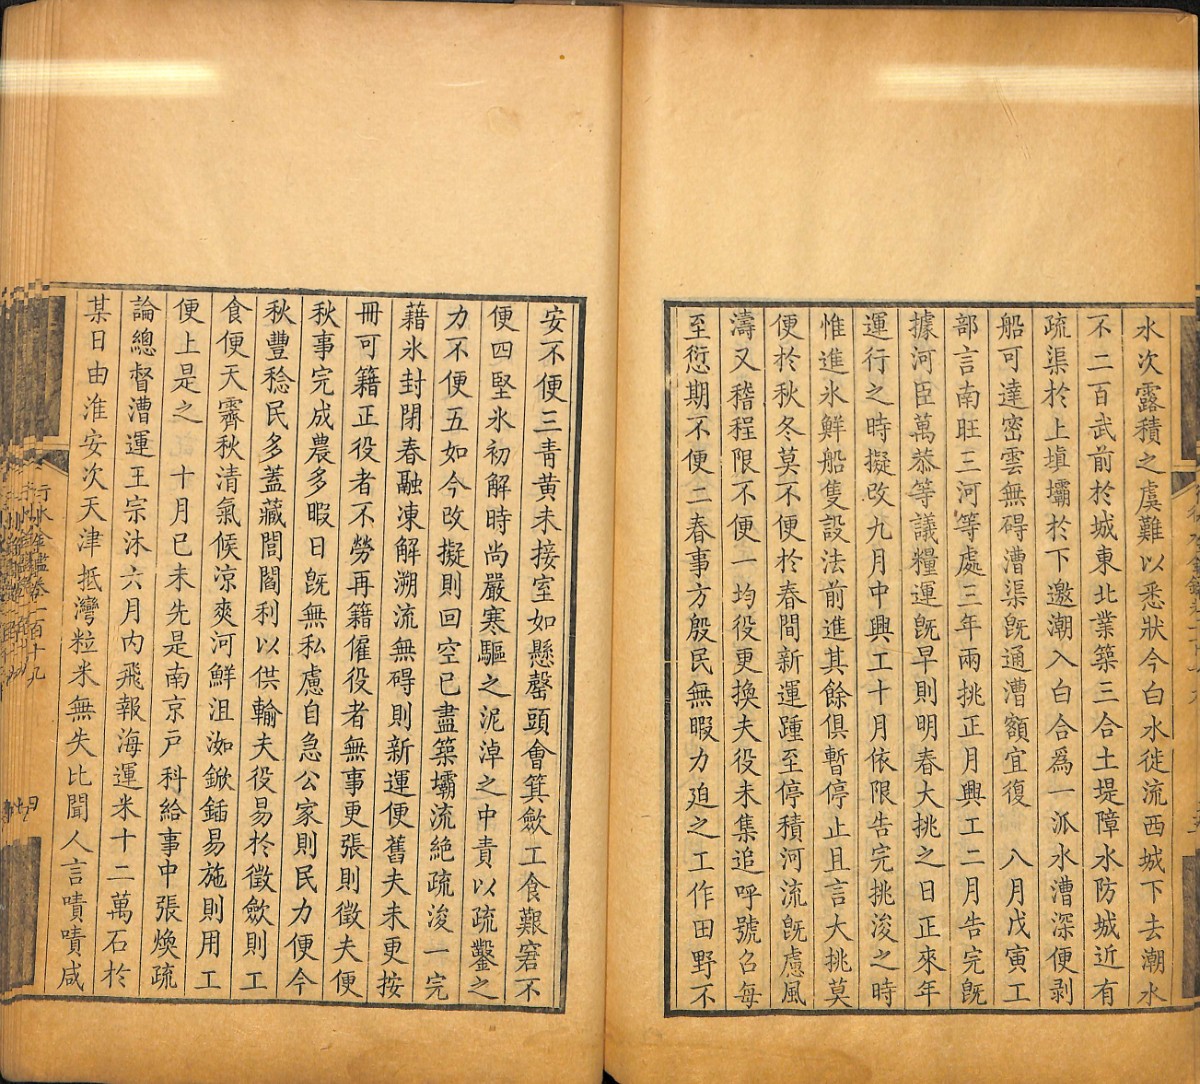 水次露積之虞難以悉狀今白水徙流西城下去潮水
不二百武前於城東北業築三合土堤障水防城近有
疏渠於上塡壩於下邀潮入白合爲一派水漕深便剥
船可達密雲無碍漕渠旣通漕額宜復　八月戊寅工
部言南旺三河等處三年兩挑正月興工二月告完旣
據河臣萬恭等議糧運旣早則明春大挑之日正來年
運行之時擬改九月中興工十月依限告完挑浚之時
惟進氷鮮船隻設法前進其餘俱暫停止且言大挑莫
便於秋冬莫不便於春間新運踵至停積河流旣慮風
濤又稽程限不便一均役更換夫役未集追呼號召每
至愆期不便二春事方殷民無暇力迫之工作田野不
安不便三青黄未接室如懸罄頭會箕歛工食艱窘不
便四堅氷初解時尚嚴寒驅之泥淖之中責以疏鑿之
力不便五如今改擬則回空已盡築壩流絶疏浚一完
藉氷封閉春融凍解溯流無碍則新運便舊夫未更按
冊可籍正役者不勞再籍僱役者無事更張則徵夫便
秋事完成農多暇日旣無私慮自急公家則民力便今
秋豐稔民多蓋藏閭閻利以供輸夫役易於徵歛則工
食便天霽秋清氣候凉爽河鮮沮洳鍁鍤易施則用工
便上是之　十月己未先是南京戸科給事中張煥疏
論總督漕運王宗沐六月内飛報海運米十二萬石於
某日由淮安次天津抵灣粒米無失比聞人言嘖嘖咸
行水金鑑卷一百十九